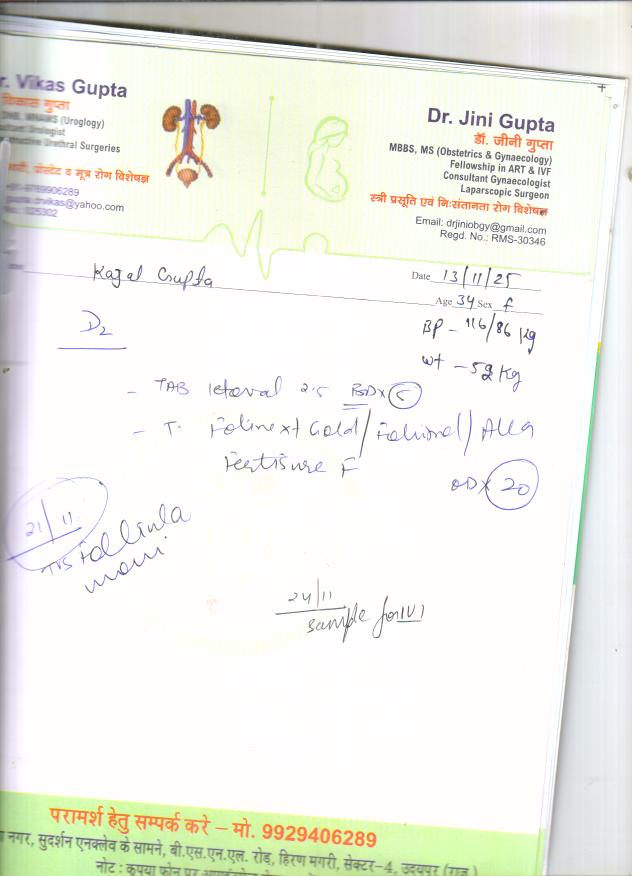 r. Vikas Gupta
विकास गुप्ता
(Urology)
Urethral Surgeries
प्रोस्टेट व मूत्र रोग विशेषज्ञ
9789906289
drvikas@yahoo.com
025302
Dr. Jini Gupta
डॉ. जीनी गुप्ता
MBBS, MS (Obstetrics & Gynaecology)
Fellowship in ART & IVF
Consultant Gynaecologist
Laparscopic Surgeon
स्त्री प्रसूति एवं निःसंतानता रोग विशेषज्ञ
Email: drjiniobgy@gmail.com
Regd. No.: RMS-30346
Kajal Gupta
Date 13/11/25
Age 34 Sex f
BP - 116/86
wt - 59 Kg
D2
- TAB letoval 2.5 BD x 5
- T. Folinext Gold /
Fertisure F
OD x 20
21/11
TVS Follicula
moni
24/11
sample for IUI
परामर्श हेतु सम्पर्क करे – मो. 9929406289
नगर, सुदर्शन एनक्लेव के सामने, बी.एस.एन.एल. रोड, हिरण मगरी, सेक्टर-4, उदयपुर (राज.)
नोट : कृपया फोन पर